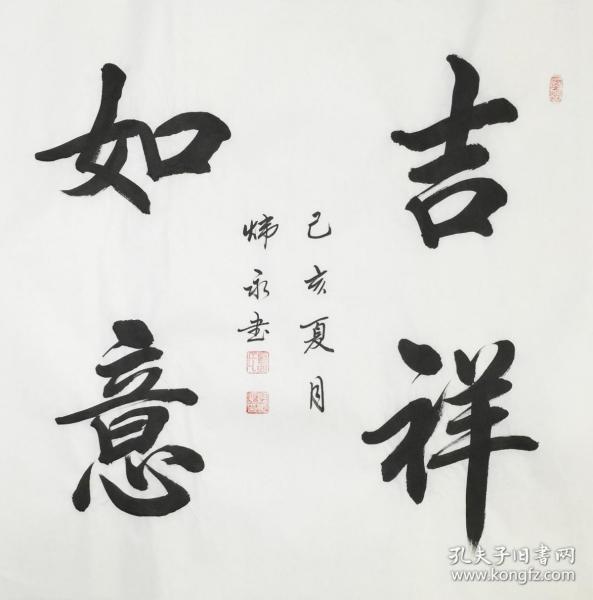 吉祥
如意
己亥夏月
炜永书
孔夫子旧书网
www.kongfz.com